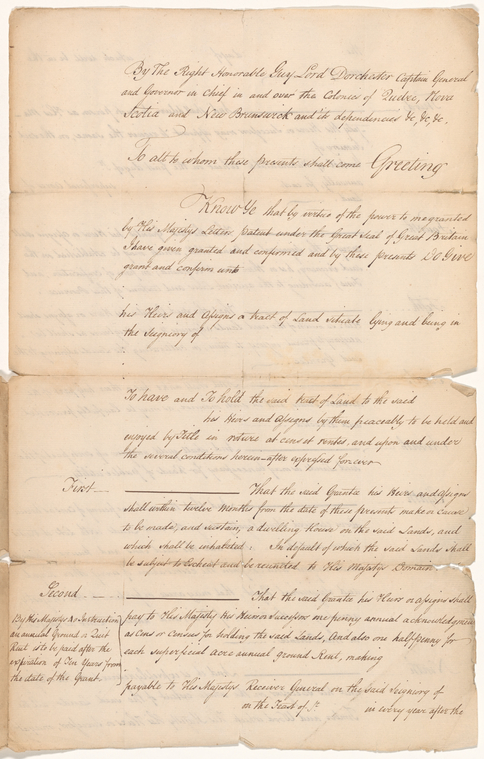 By The Right Honorable Guy Lord Dorchester Captain General
and Governor in Chief in and over the Colonies of Quebec, Nova
Scotia and New Brunswick and its dependencies &c, &c, &c,
To all to whom these presents shall come Greeting
Know Ye that by virtue of the power to me granted
by His Majestys Letters patent under the Great Seal of Great Britain
I have given granted and confirmed and by these presents Do Give
grant and confirm unto
his Heirs and Assigns a tract of Land situate lying and being in
the Seigniory of
To have and To hold the said tract of Land to the said
his Heirs and Assigns by them peaceably to be held and
enjoyed by Title in roture at cens et rentes, and upon and under
the several conditions herein-after expressed forever
First That the said Grantee his Heirs and Assigns
shall within twelve Months from the date of these presents make or cause
to be made, and sustain, a dwelling House on the said Lands, and
which shall be inhabited; In default of which the said Lands shall
be subject to Escheat and be reunited to His Majestys Domain
Second That the said Grantee his Heirs or assigns shall
pay to His Majesty His Heirs or Successors one penny annual acknowledgment
as Cens or Censives for holding the said Lands, And also one half penny for
each superficial acre annual ground Rent, making
payable to His Majestys Receiver General on the said Seigniory of
on the Feast of St. in every year after the
By His Majestys Instructions
an annual Ground or Quit
Rent is to be paid after the
expiration of Ten Years from
the date of the Grant.